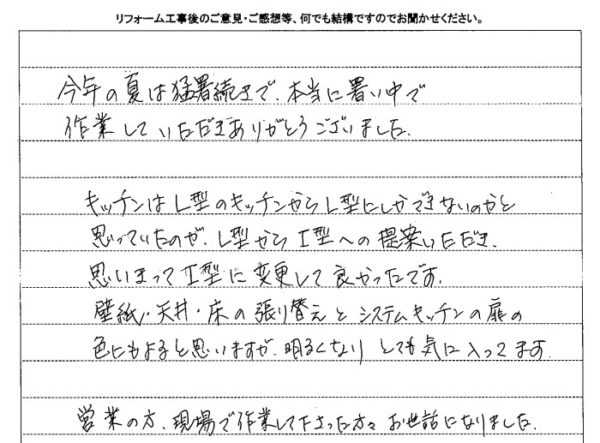 リフォーム工事後のご意見・ご感想等、何でも結構ですのでお聞かせください。
今年の夏は猛暑続きで、本当に暑い中で
作業していただきありがとうございました。
キッチンはL型のキッチンからL型にしかできないのかと
思っていたのが、L型からI型への提案いただき、
思いきってI型に変更して良かったです。
壁紙・天井・床の張り替えとシステムキッチンの扉の
色にもよると思いますが、明るくなりとても気に入ってます。
営業の方、現場で作業して下さった方々お世話になりました。